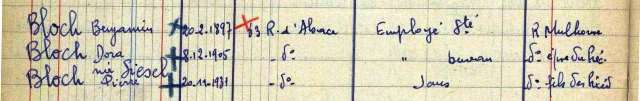 Bloch Benjamin 20-2-1897 53 R. d'Alsace Employé Sté R Mulhouse
Bloch Dora 8.12.1905 - dº " bureau dº
née Giesel
Bloch Pierre 20-11-1931 - dº dº fils des